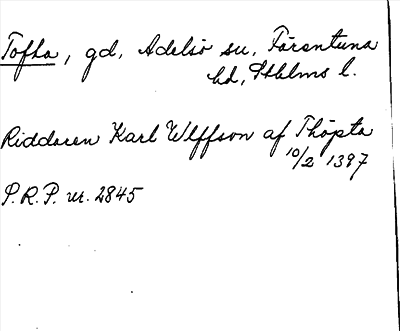 Tofta, gd, Adelsö sn, Färentuna
hd, Sthlms l.
Riddaren Karl Ulffson af Thöpta
10/2 1397
P.R.P. nr. 2845